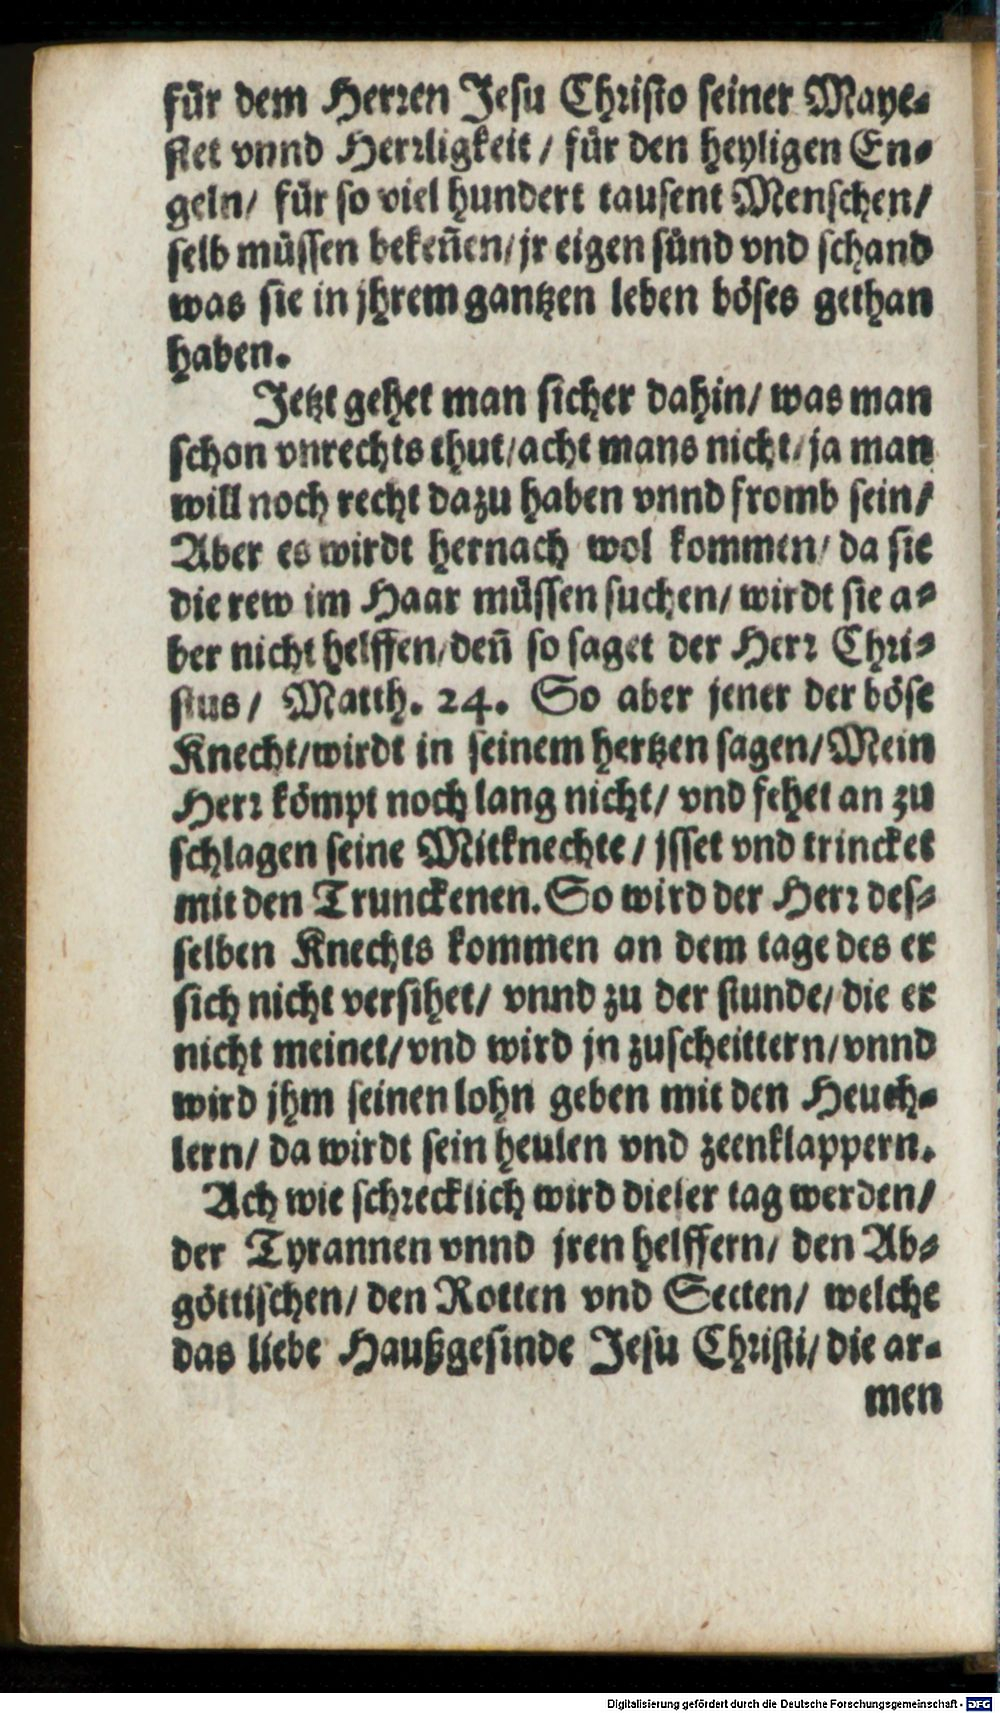 für dem Herren Jesu Christo seiner Maye-
stet vnnd Herrligkeit / für den heyligen En-
geln/ für so viel hundert tausent Menschen/
selb müssen bekeñen/ jr eigen sünd vnd schand
was sie in jhrem gantzen leben böses gethan
haben.
Jetzt gehet man sicher dahin/ was man
schon vnrechts thut/ acht mans nicht/ ja man
will noch recht dazu haben vnnd fromb sein/
Aber es wirdt hernach wol kommen/ da sie
die rew im Haar müssen suchen/ wirdt sie a-
ber nicht helffen/ deñ so saget der Herr Chri-
stus/ Matth. 24. So aber jener der böse
Knecht/ wirdt in seinem hertzen sagen/ Mein
Herr kömpt noch lang nicht/ vnd fehet an zu
schlagen seine Mitknechte / jsset vnd trincket
mit den Trunckenen. So wird der Herr des-
selben Knechts kommen an dem tage des er
sich nicht versihet/ vnnd zu der stunde/ die er
nicht meinet/ vnd wird jn zuscheittern/ vnnd
wird jhm seinen lohn geben mit den Heuch-
lern/ da wirdt sein heulen vnd zeenklappern.
Ach wie schrecklich wird dieser tag werden/
der Tyrannen vnnd jren helffern/ den Ab-
göttischen/ den Rotten vnd Secten/ welche
das liebe Haußgesinde Jesu Christi/ die ar-
men
Digitalisierung gefördert durch die Deutsche Forschungsgemeinschaft - DFG